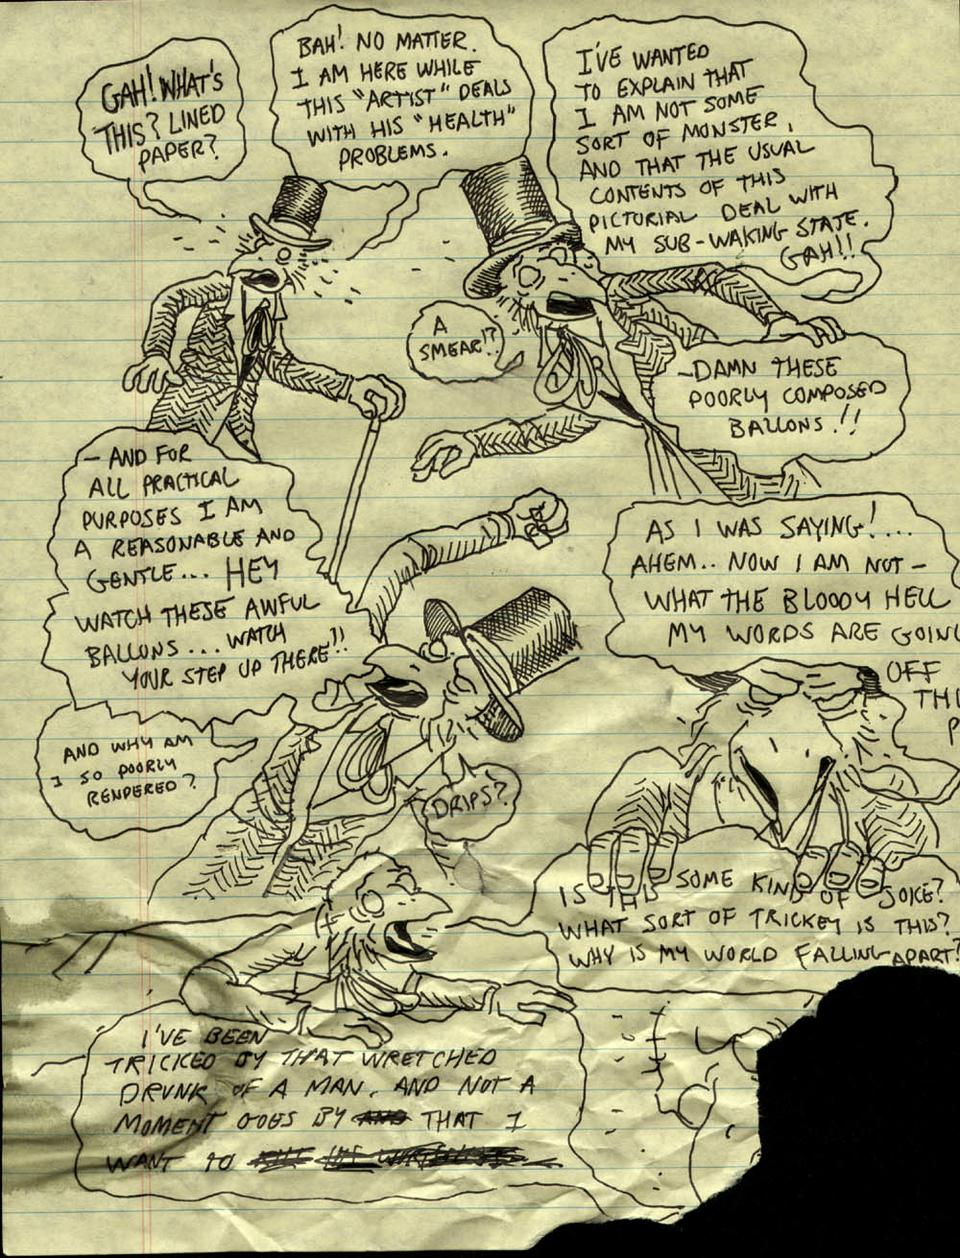 GAH! WHAT'S
THIS? LINED
PAPER?
BAH! NO MATTER.
I AM HERE WHILE
THIS "ARTIST" DEALS
WITH HIS "HEALTH"
PROBLEMS.
I'VE WANTED
TO EXPLAIN THAT
I AM NOT SOME
SORT OF MONSTER,
AND THAT THE USUAL
CONTENTS OF THIS
PICTORIAL DEAL WITH
MY SUB-WAKING STATE.
GAH!!
A
SMEAR!?
-DAMN THESE
POORLY COMPOSED
BALLONS!!
- AND FOR
ALL PRACTICAL
PURPOSES I AM
A REASONABLE AND
GENTLE... HEY
WATCH THESE AWFUL
BALLONS... WATCH
YOUR STEP UP THERE!!
AND WHY AM
I SO POORLY
RENDERED?
DRIPS?
AS I WAS SAYING!...
AHEM.. NOW I AM NOT -
WHAT THE BLOODY HELL
MY WORDS ARE GOING
OFF
IS THIS SOME KIND OF JOKE?
WHAT SORT OF TRICKEY IS THIS?
WHY IS MY WORLD FALLING APART?
I'VE BEEN
TRICKED BY THAT WRETCHED
DRUNK OF A MAN. AND NOT A
MOMENT GOES BY AND THAT I
WANT TO